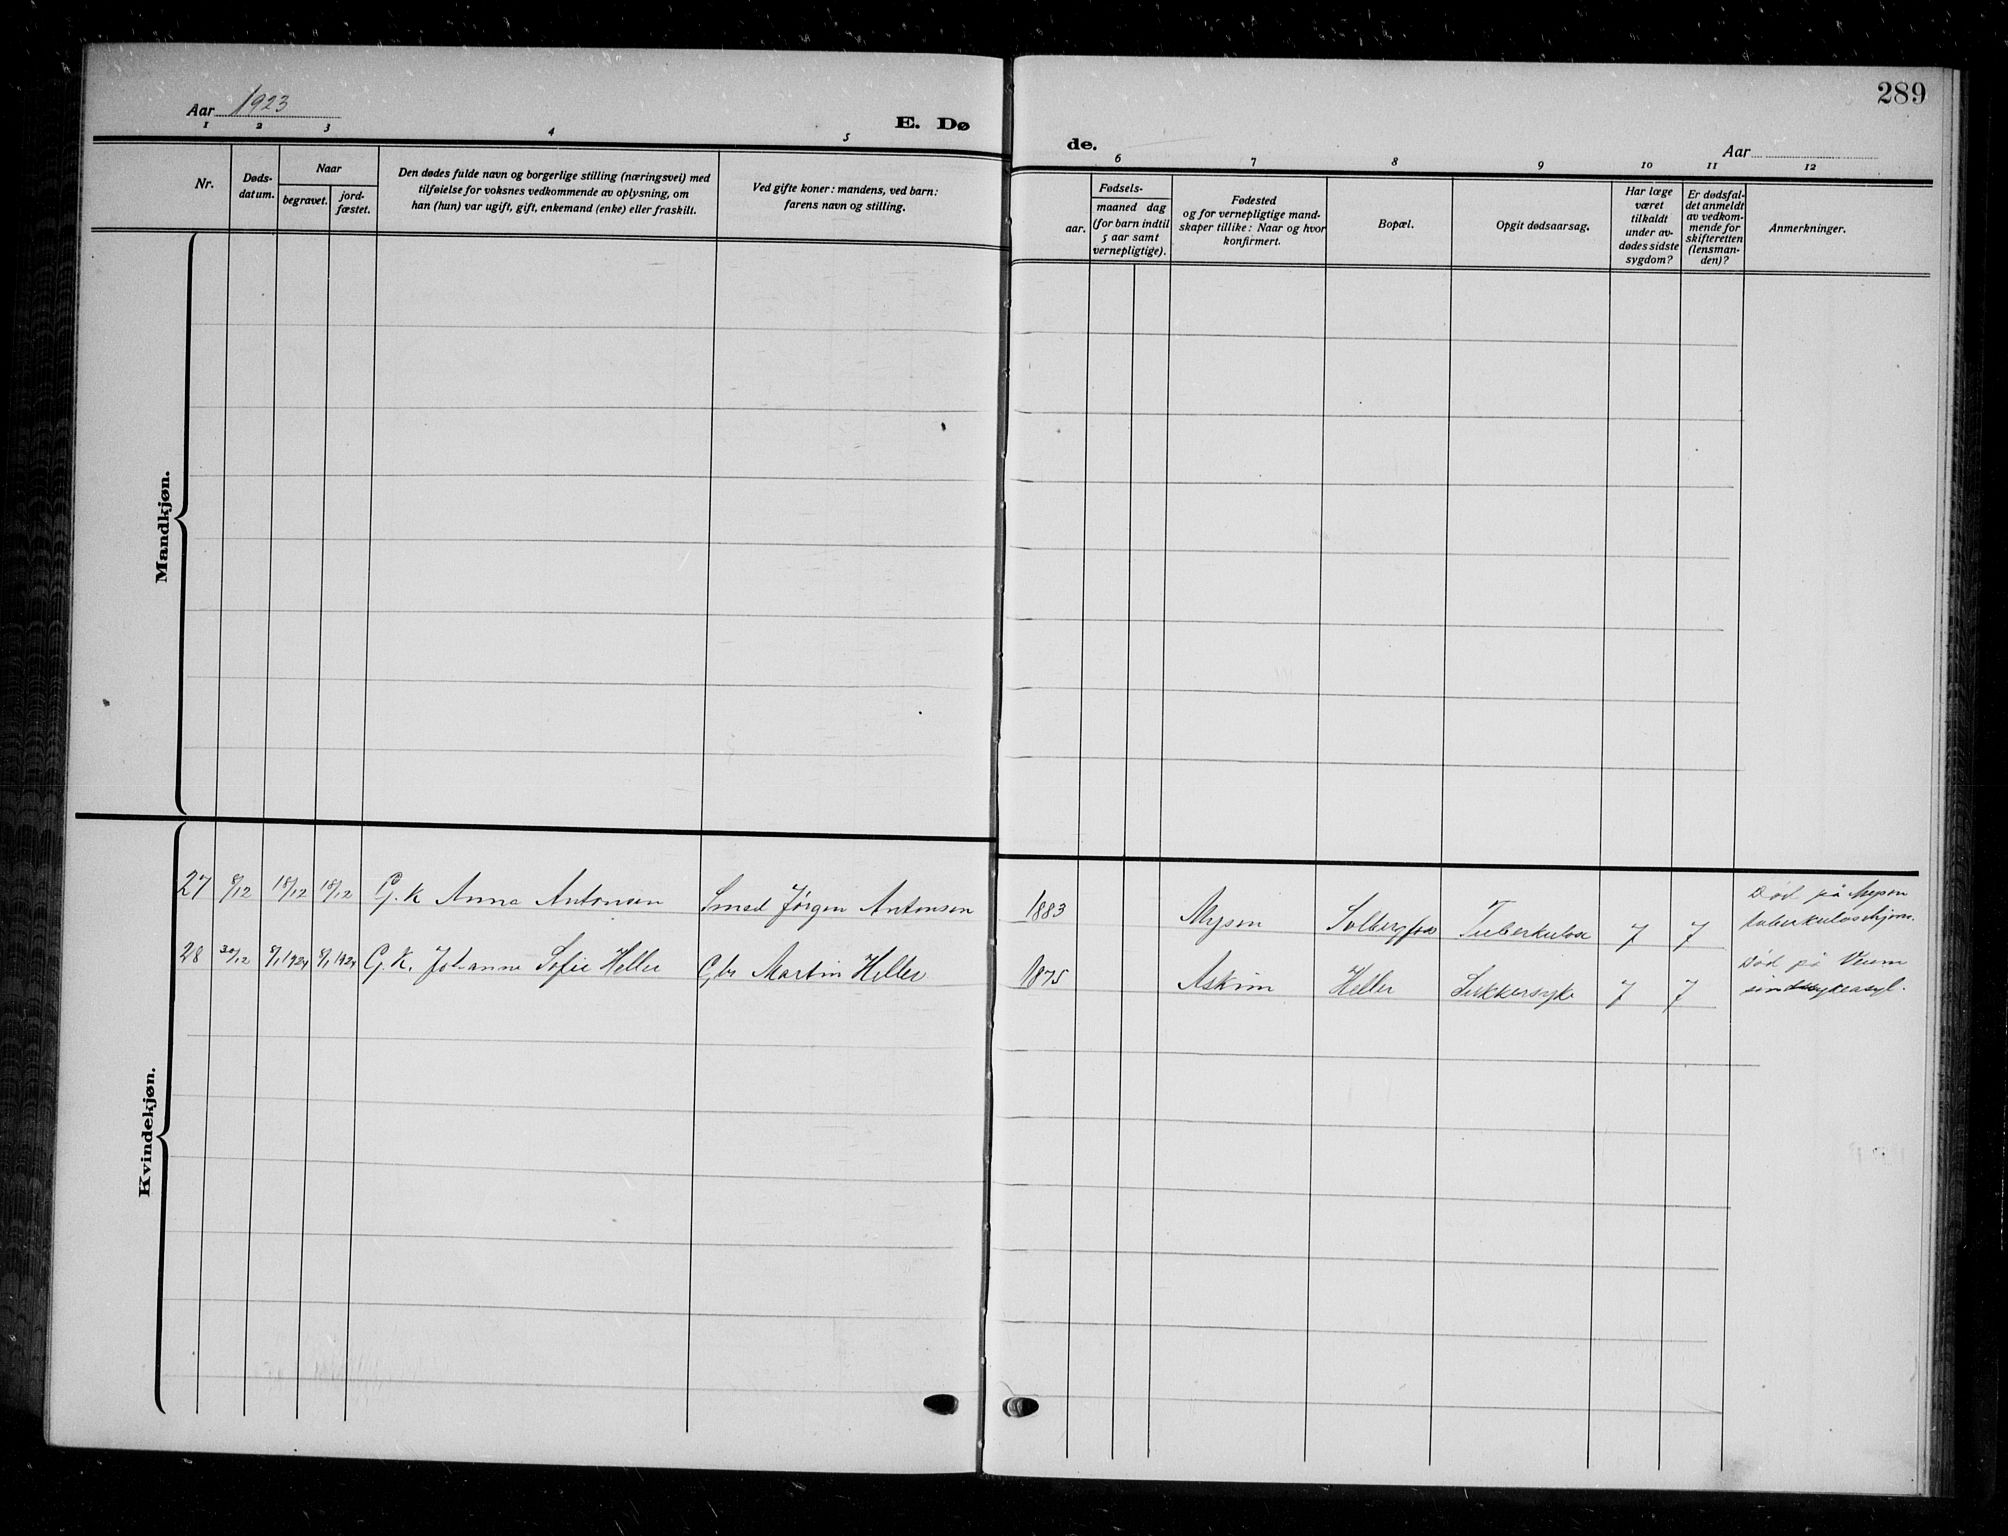 289
Aar 1923
E. Dø
de.
Aar
1 2 3 4 5
6 7 8 9 10 11 12
Nr.
Døds-
datum.
Naar
begravet.
jord-
fæstet.
Den dødes fulde navn og borgerlige stilling (næringsvei) med
tilføielse for voksnes vedkommende av oplysning, om
han (hun) var ugift, gift, enkemand (enke) eller fraskilt.
Ved gifte koner: mandens, ved barn:
farens navn og stilling.
Fødsels-
aar.
maaned dag
(for barn indtil
5 aar samt
vernepligtige).
Fødested
og for vernepligtige mand-
skaper tillike: Naar og hvor
konfirmert.
Bopæl.
Opgit dødsaarsag.
Har læge
været
tilkaldt
under av-
dødes sidste
sygdom?
Er dødsfal-
det anmeldt
av vedkom-
mende for
skifteretten
(lensman-
den)?
Anmerkninger.
Mandkjøn.
Kvindekjøn.
27 8/12 18/12 18/12 G. K. Anna Antonsen Smed Jørgen Antonsen 1883 Mysen Solbergfoss Tuberkulose J J Død på Mysen
tuberkuloschjem.
28 30/12 8/1 1924 8/1 1924 G. K. Johanne Sofie Heller Gbr Martin Heller 1875 Askim Heller Sukkersyke J J Død på Veum
sindssykeasyl.